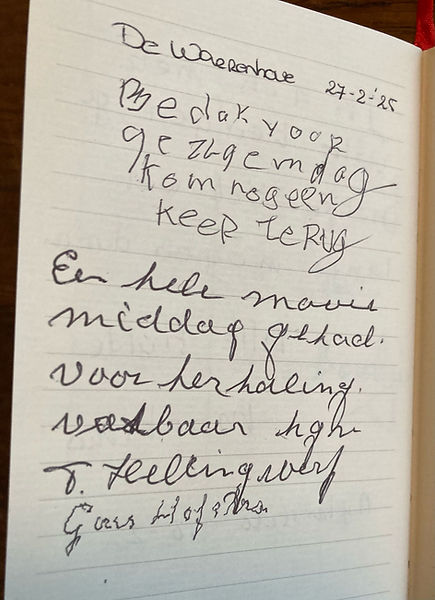 De Waerenhove 27-2-'25
Bedak voor
gezzgemdag
kom nog een
keer terug
Een hele mooie
middag gehad.
voor herhaling.
vatbaar
T. Hellingwerf